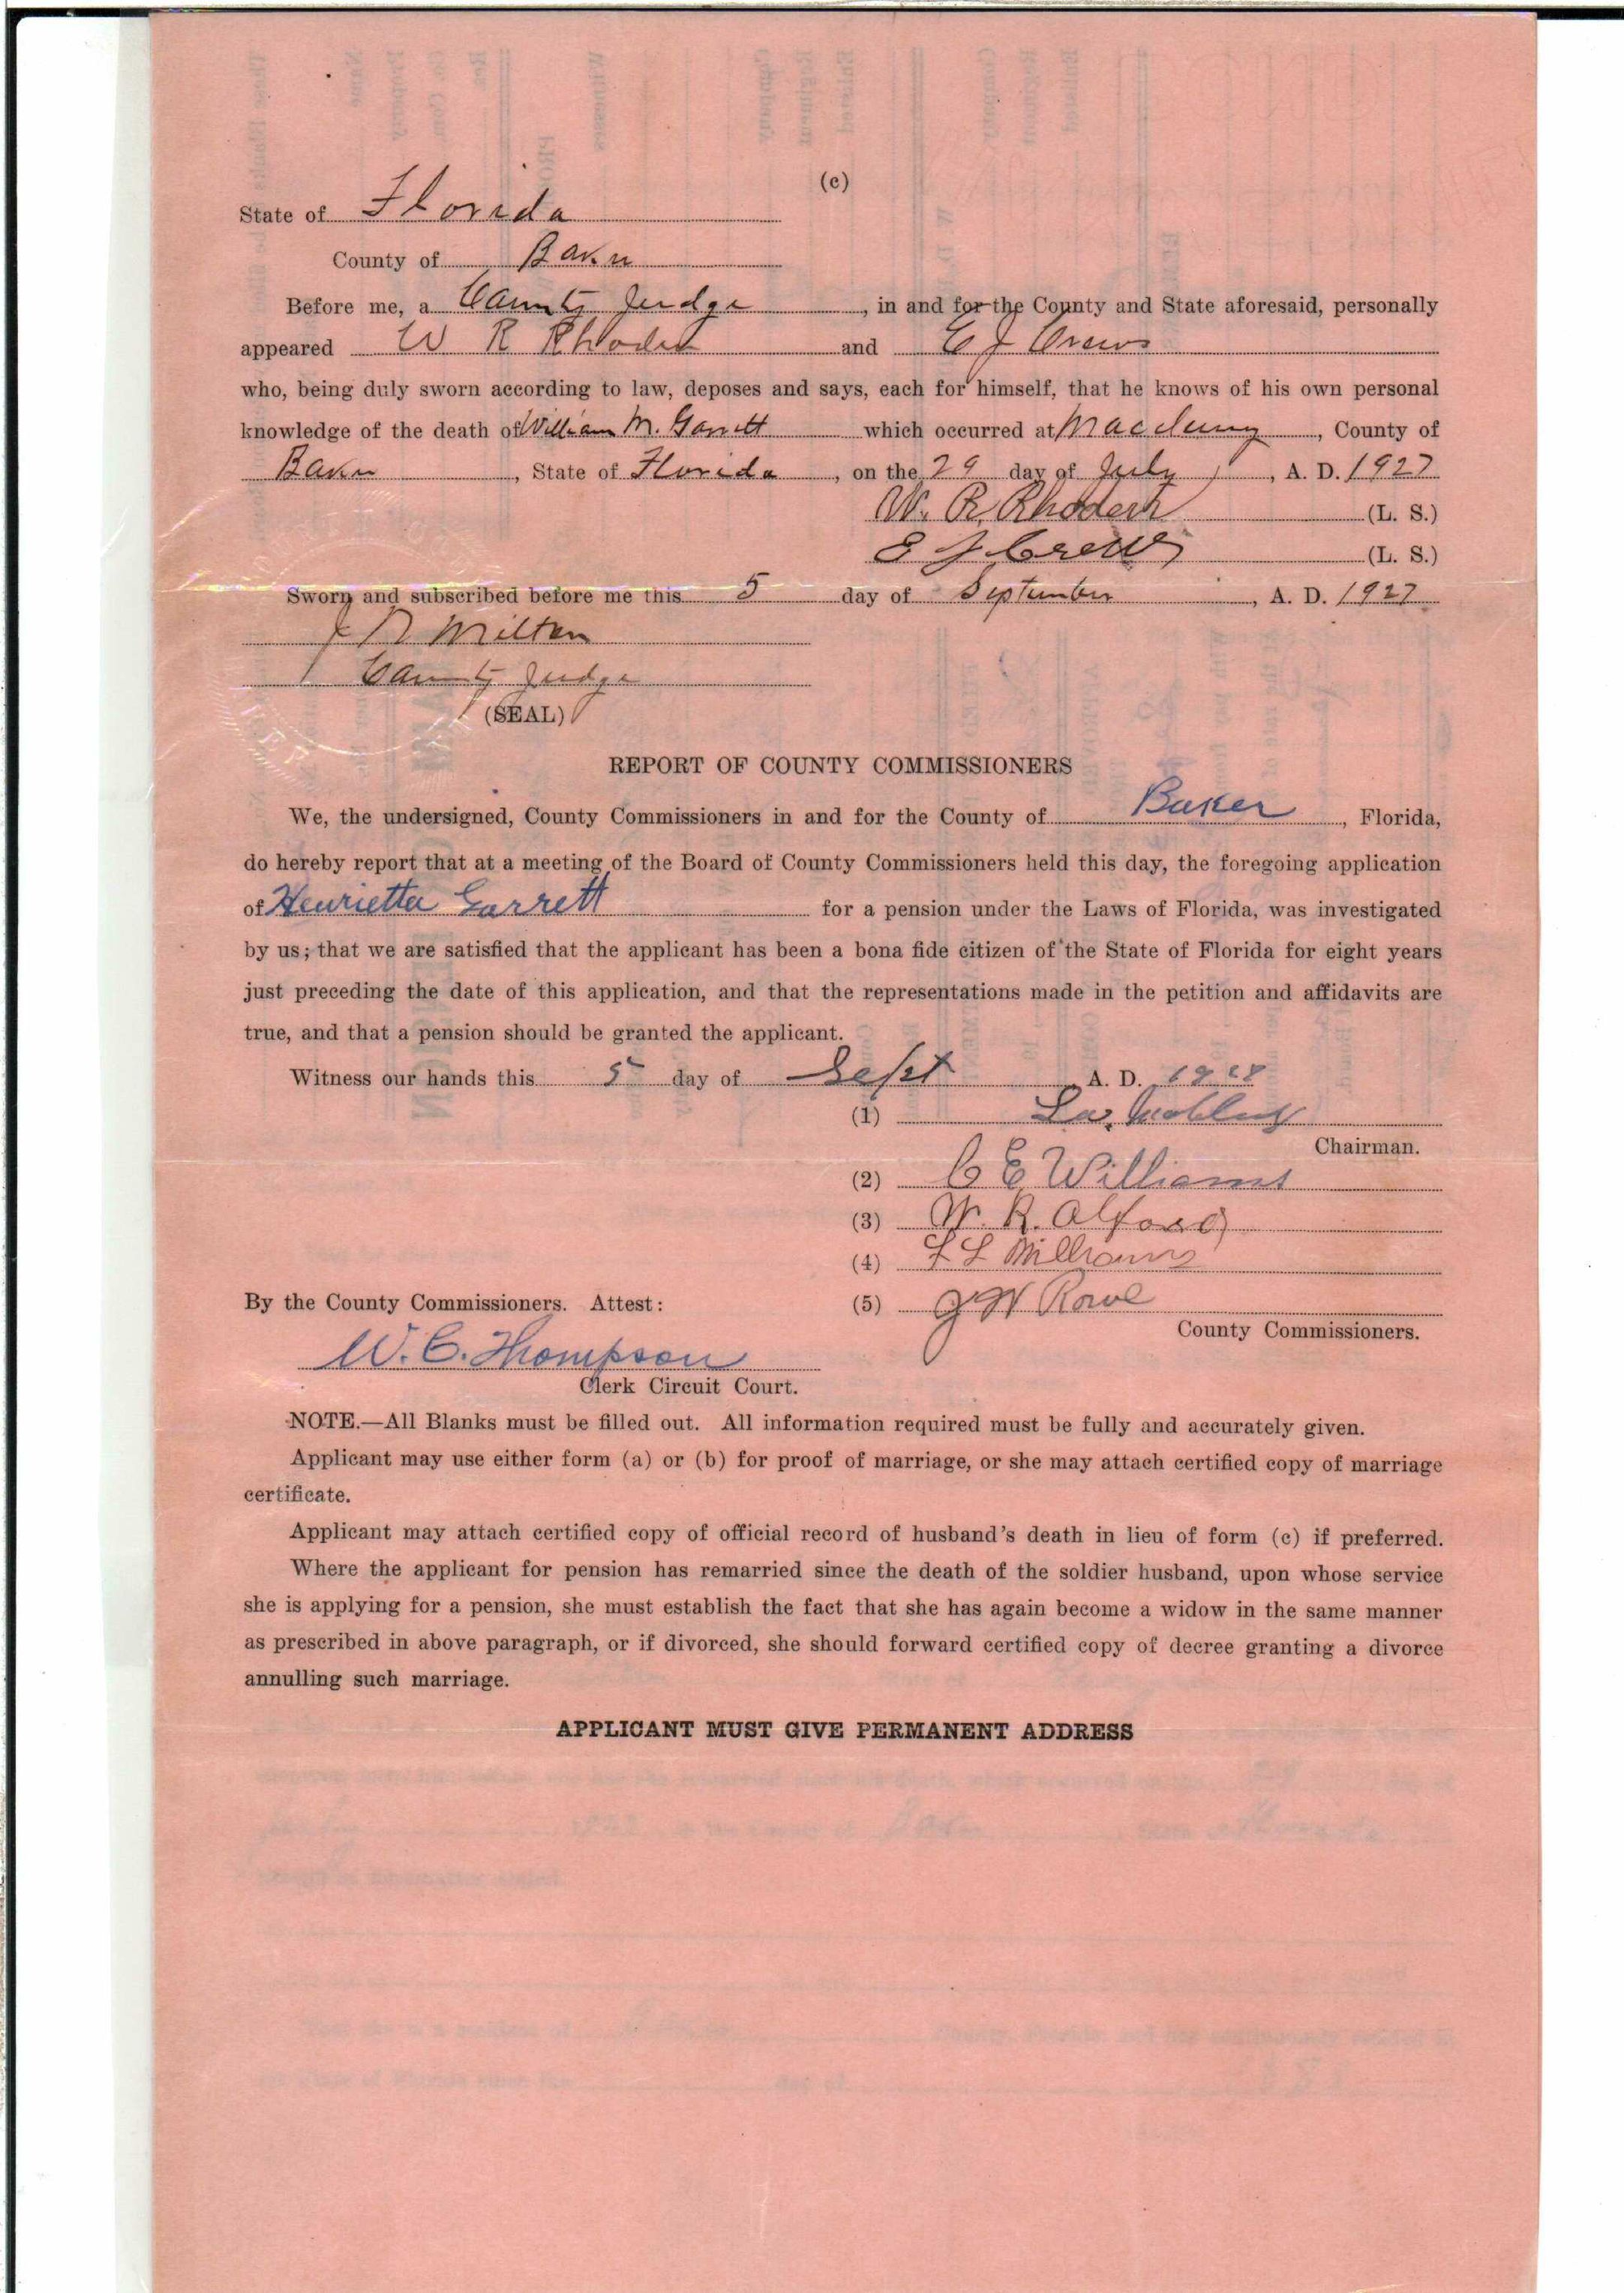 (c)
State of Florida
County of Baker
Before me, a County Judge, in and for the County and State aforesaid, personally
appeared W R Rhoden and E J Crews
who, being duly sworn according to law, deposes and says, each for himself, that he knows of his own personal
knowledge of the death of William M. Garrett which occurred at Macclenny, County of
Baker, State of Florida, on the 29 day of July, A. D. 1927
W. R. Rhoden (L. S.)
E J Crews (L. S.)
Sworn and subscribed before me this 5 day of September, A. D. 1927
Milton
County Judge
(SEAL)
REPORT OF COUNTY COMMISSIONERS
We, the undersigned, County Commissioners in and for the County of Baker, Florida,
do hereby report that at a meeting of the Board of County Commissioners held this day, the foregoing application
of Henrietta Garrett for a pension under the Laws of Florida, was investigated
by us; that we are satisfied that the applicant has been a bona fide citizen of the State of Florida for eight years
just preceding the date of this application, and that the representations made in the petition and affidavits are
true, and that a pension should be granted the applicant.
Witness our hands this 5 day of Sept A. D.
(1)
Chairman.
(2) C E Williams
(3) W. R. Alford
(4) L L Williams
By the County Commissioners. Attest: (5) J W Rowe
County Commissioners.
W. C. Thompson
Clerk Circuit Court.
NOTE.—All Blanks must be filled out. All information required must be fully and accurately given.
Applicant may use either form (a) or (b) for proof of marriage, or she may attach certified copy of marriage
certificate.
Applicant may attach certified copy of official record of husband's death in lieu of form (c) if preferred.
Where the applicant for pension has remarried since the death of the soldier husband, upon whose service
she is applying for a pension, she must establish the fact that she has again become a widow in the same manner
as prescribed in above paragraph, or if divorced, she should forward certified copy of decree granting a divorce
annulling such marriage.
APPLICANT MUST GIVE PERMANENT ADDRESS